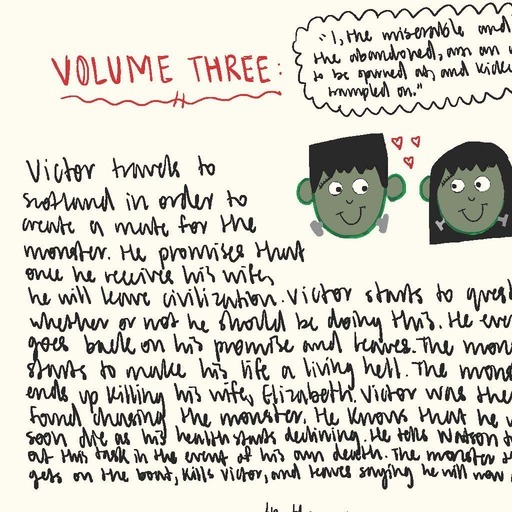 VOLUME THREE:
"I, the miserable and
the abandoned, am an
to be spurned at, and kick
trampled on."
Victor travels to
scotland in order to
create a mate for the
monster. He promises that
once he receives his wife,
he will leave civilization. Victor starts to
whether or not he should be doing this. He
goes back on his promise and leaves. The
starts to make his life a living hell. The
ends up killing his wife, Elizabeth. Victor was
found chasing the monster. He knows that he
soon die as his health starts declining. He tells Watson
out this task in the event of his own death. The monster
gets on the boat, kills Victor, and leaves saying he will now